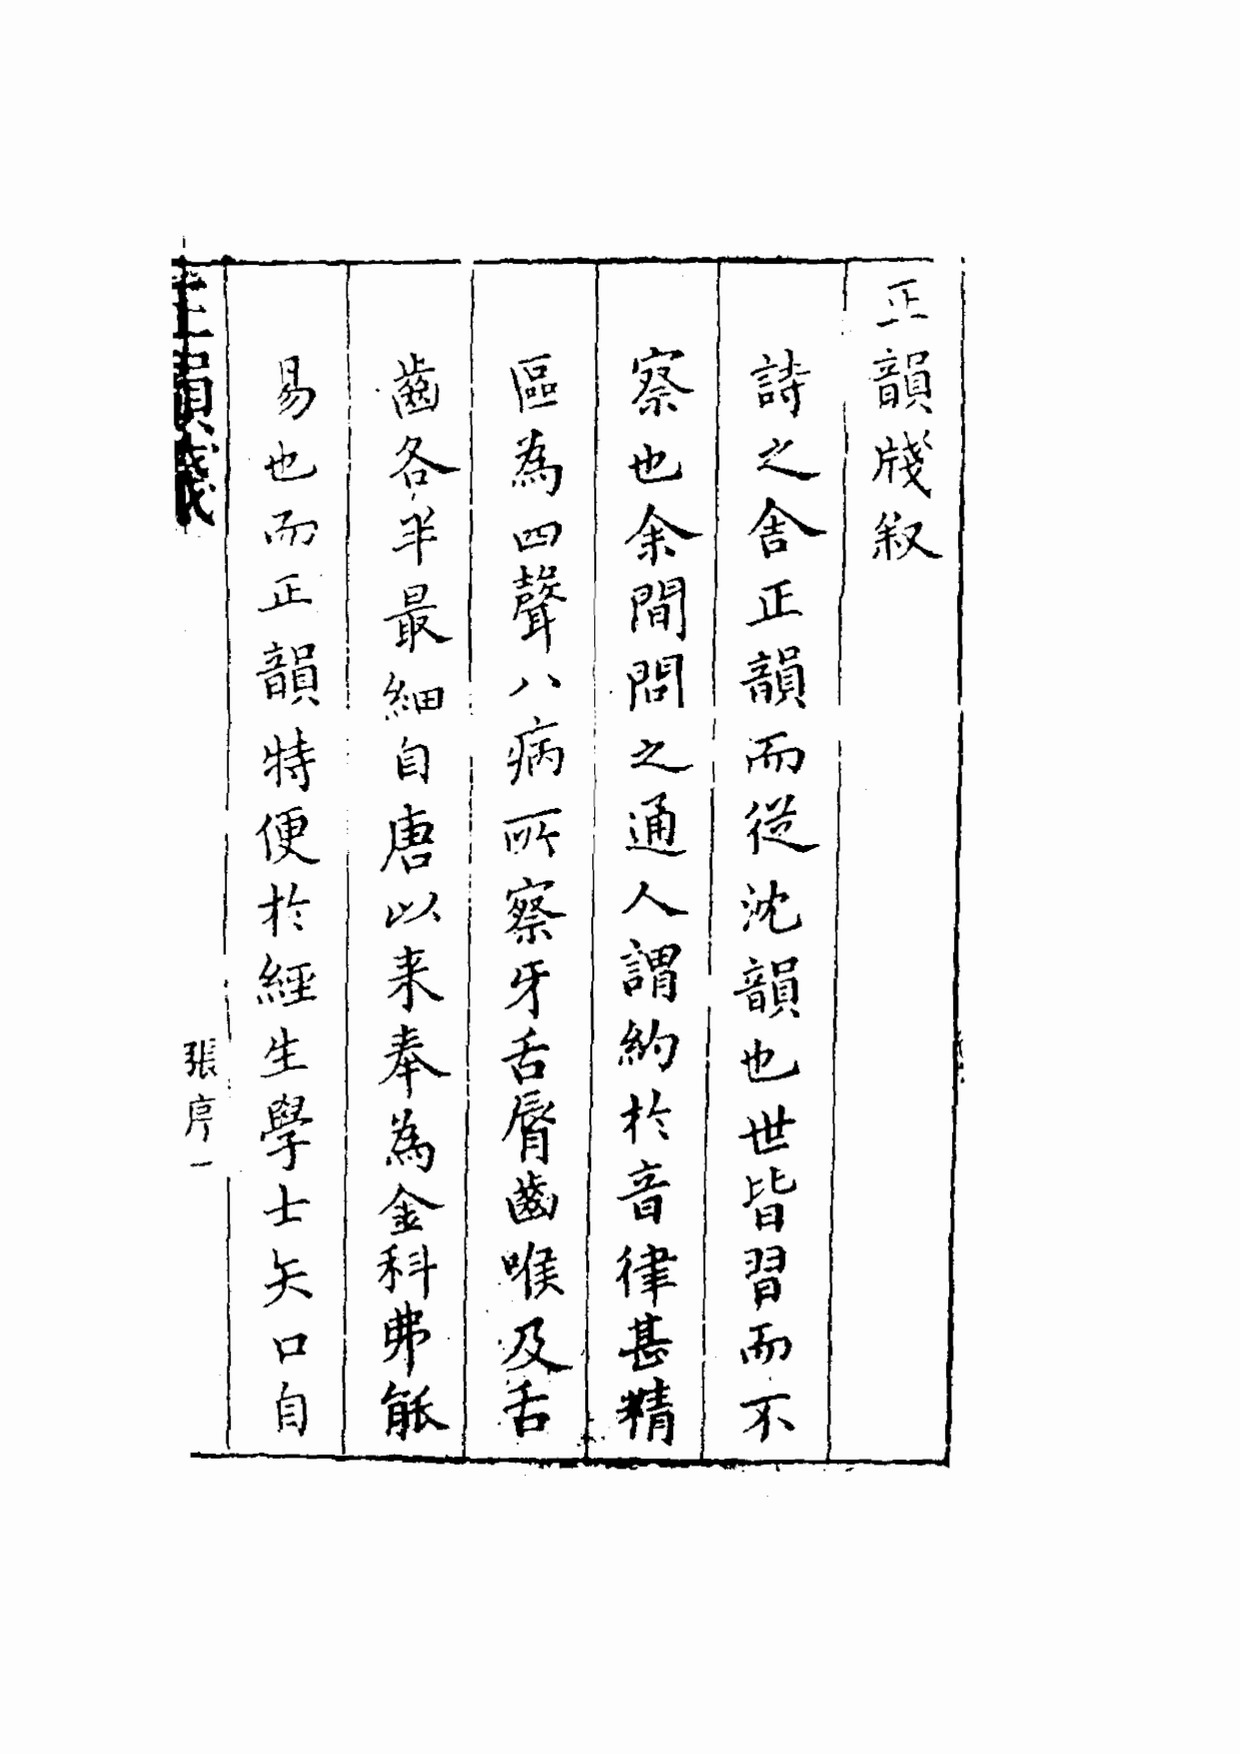 正韻牋叙
詩之舍正韻而從沈韻也世皆習而不
察也余間問之通人謂約於音律甚精
區為四聲八病所察牙舌脣齒喉及舌
齒各半最細自唐以来奉為金科弗能
易也而正韻特便於經生學士矢口自
正韻牋
張序一